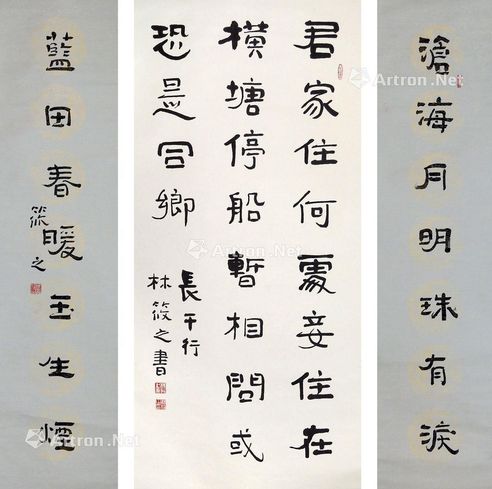 滄海月明珠有淚
君家住何處妾住在
橫塘停船暫相問或
恐是同鄉
長干行
林筱之書
藍田春暖玉生煙
筱之
Artron.Net
Artron.Net
Artron.Net
Artron.Net
Artron.Net
Artron.Net